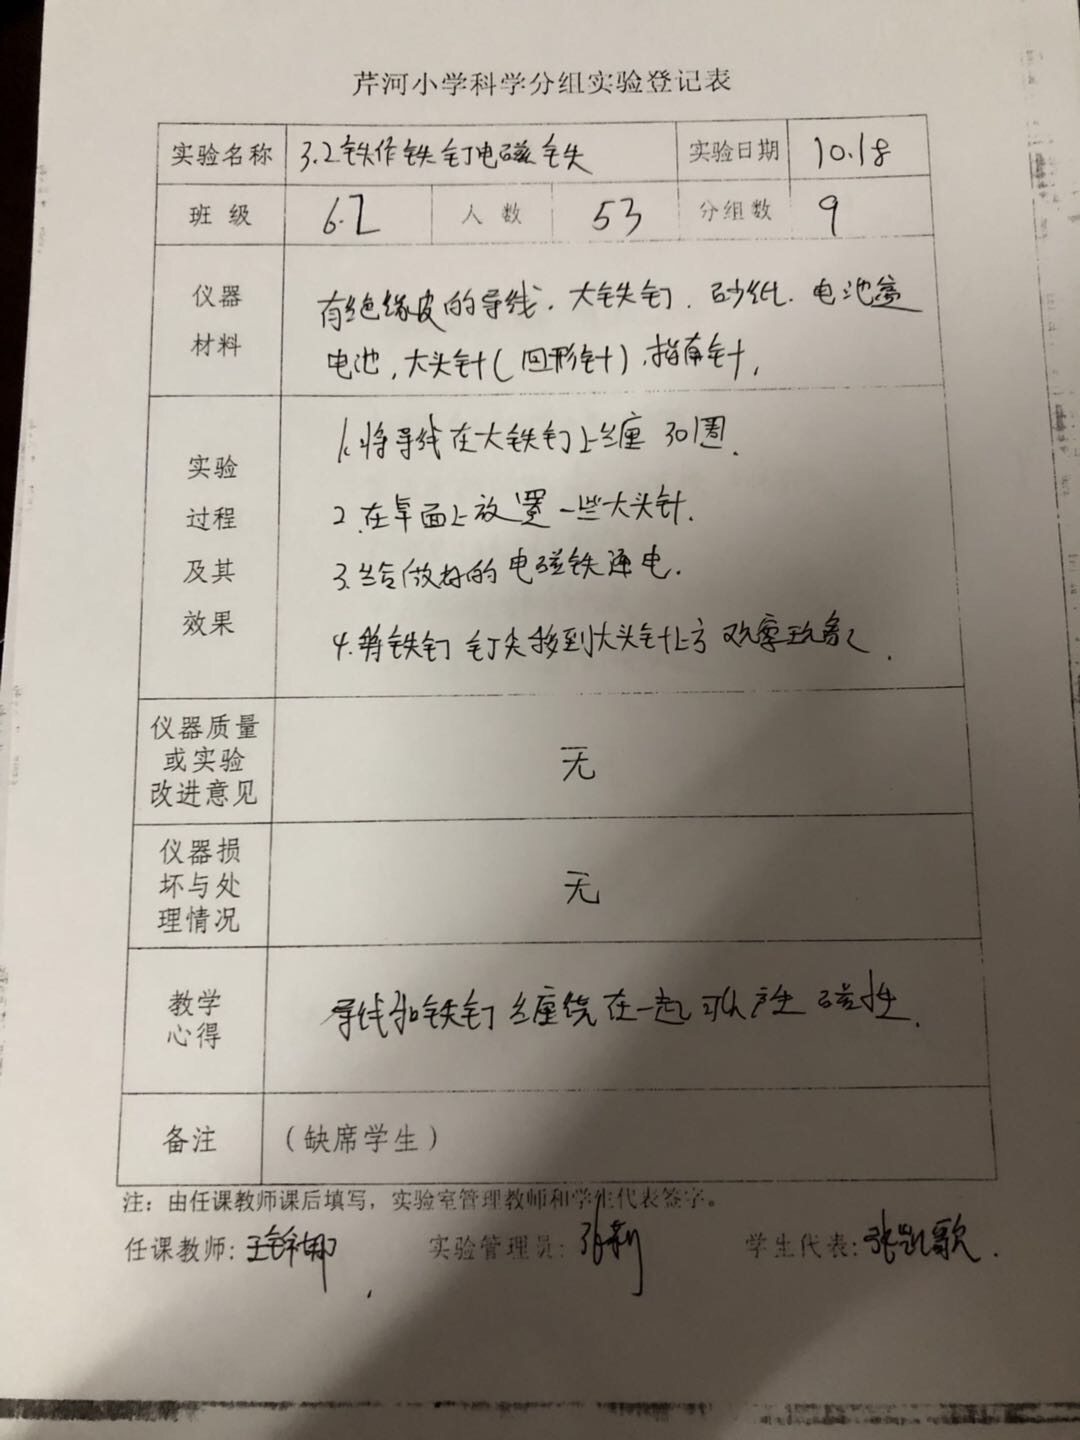 芹河小学科学分组实验登记表
实验名称 3.2铁作铁钉电磁铁 实验日期 10.18
班级 6.2 人数 53 分组数 9
仪器
材料
有绝缘皮的导线、大铁钉、砂纸、电池盒
电池、大头针(回形针)、指南针,
实验
过程
及其
效果
1.将导线在大铁钉上缠30周.
2.在桌面上放置一些大头针.
3.给做好的电磁铁通电.
4.将铁钉钉尖移到大头针上方观察现象.
仪器质量
或实验
改进意见
无
仪器损
坏与处
理情况
无
教学
心得
导线和铁钉缠绕在一起可以产生磁性.
备注 (缺席学生)
注:由任课教师课后填写,实验室管理教师和学生代表签字。
任课教师: 王 娜 实验管理员: 张莉 学生代表: 张凯歌.